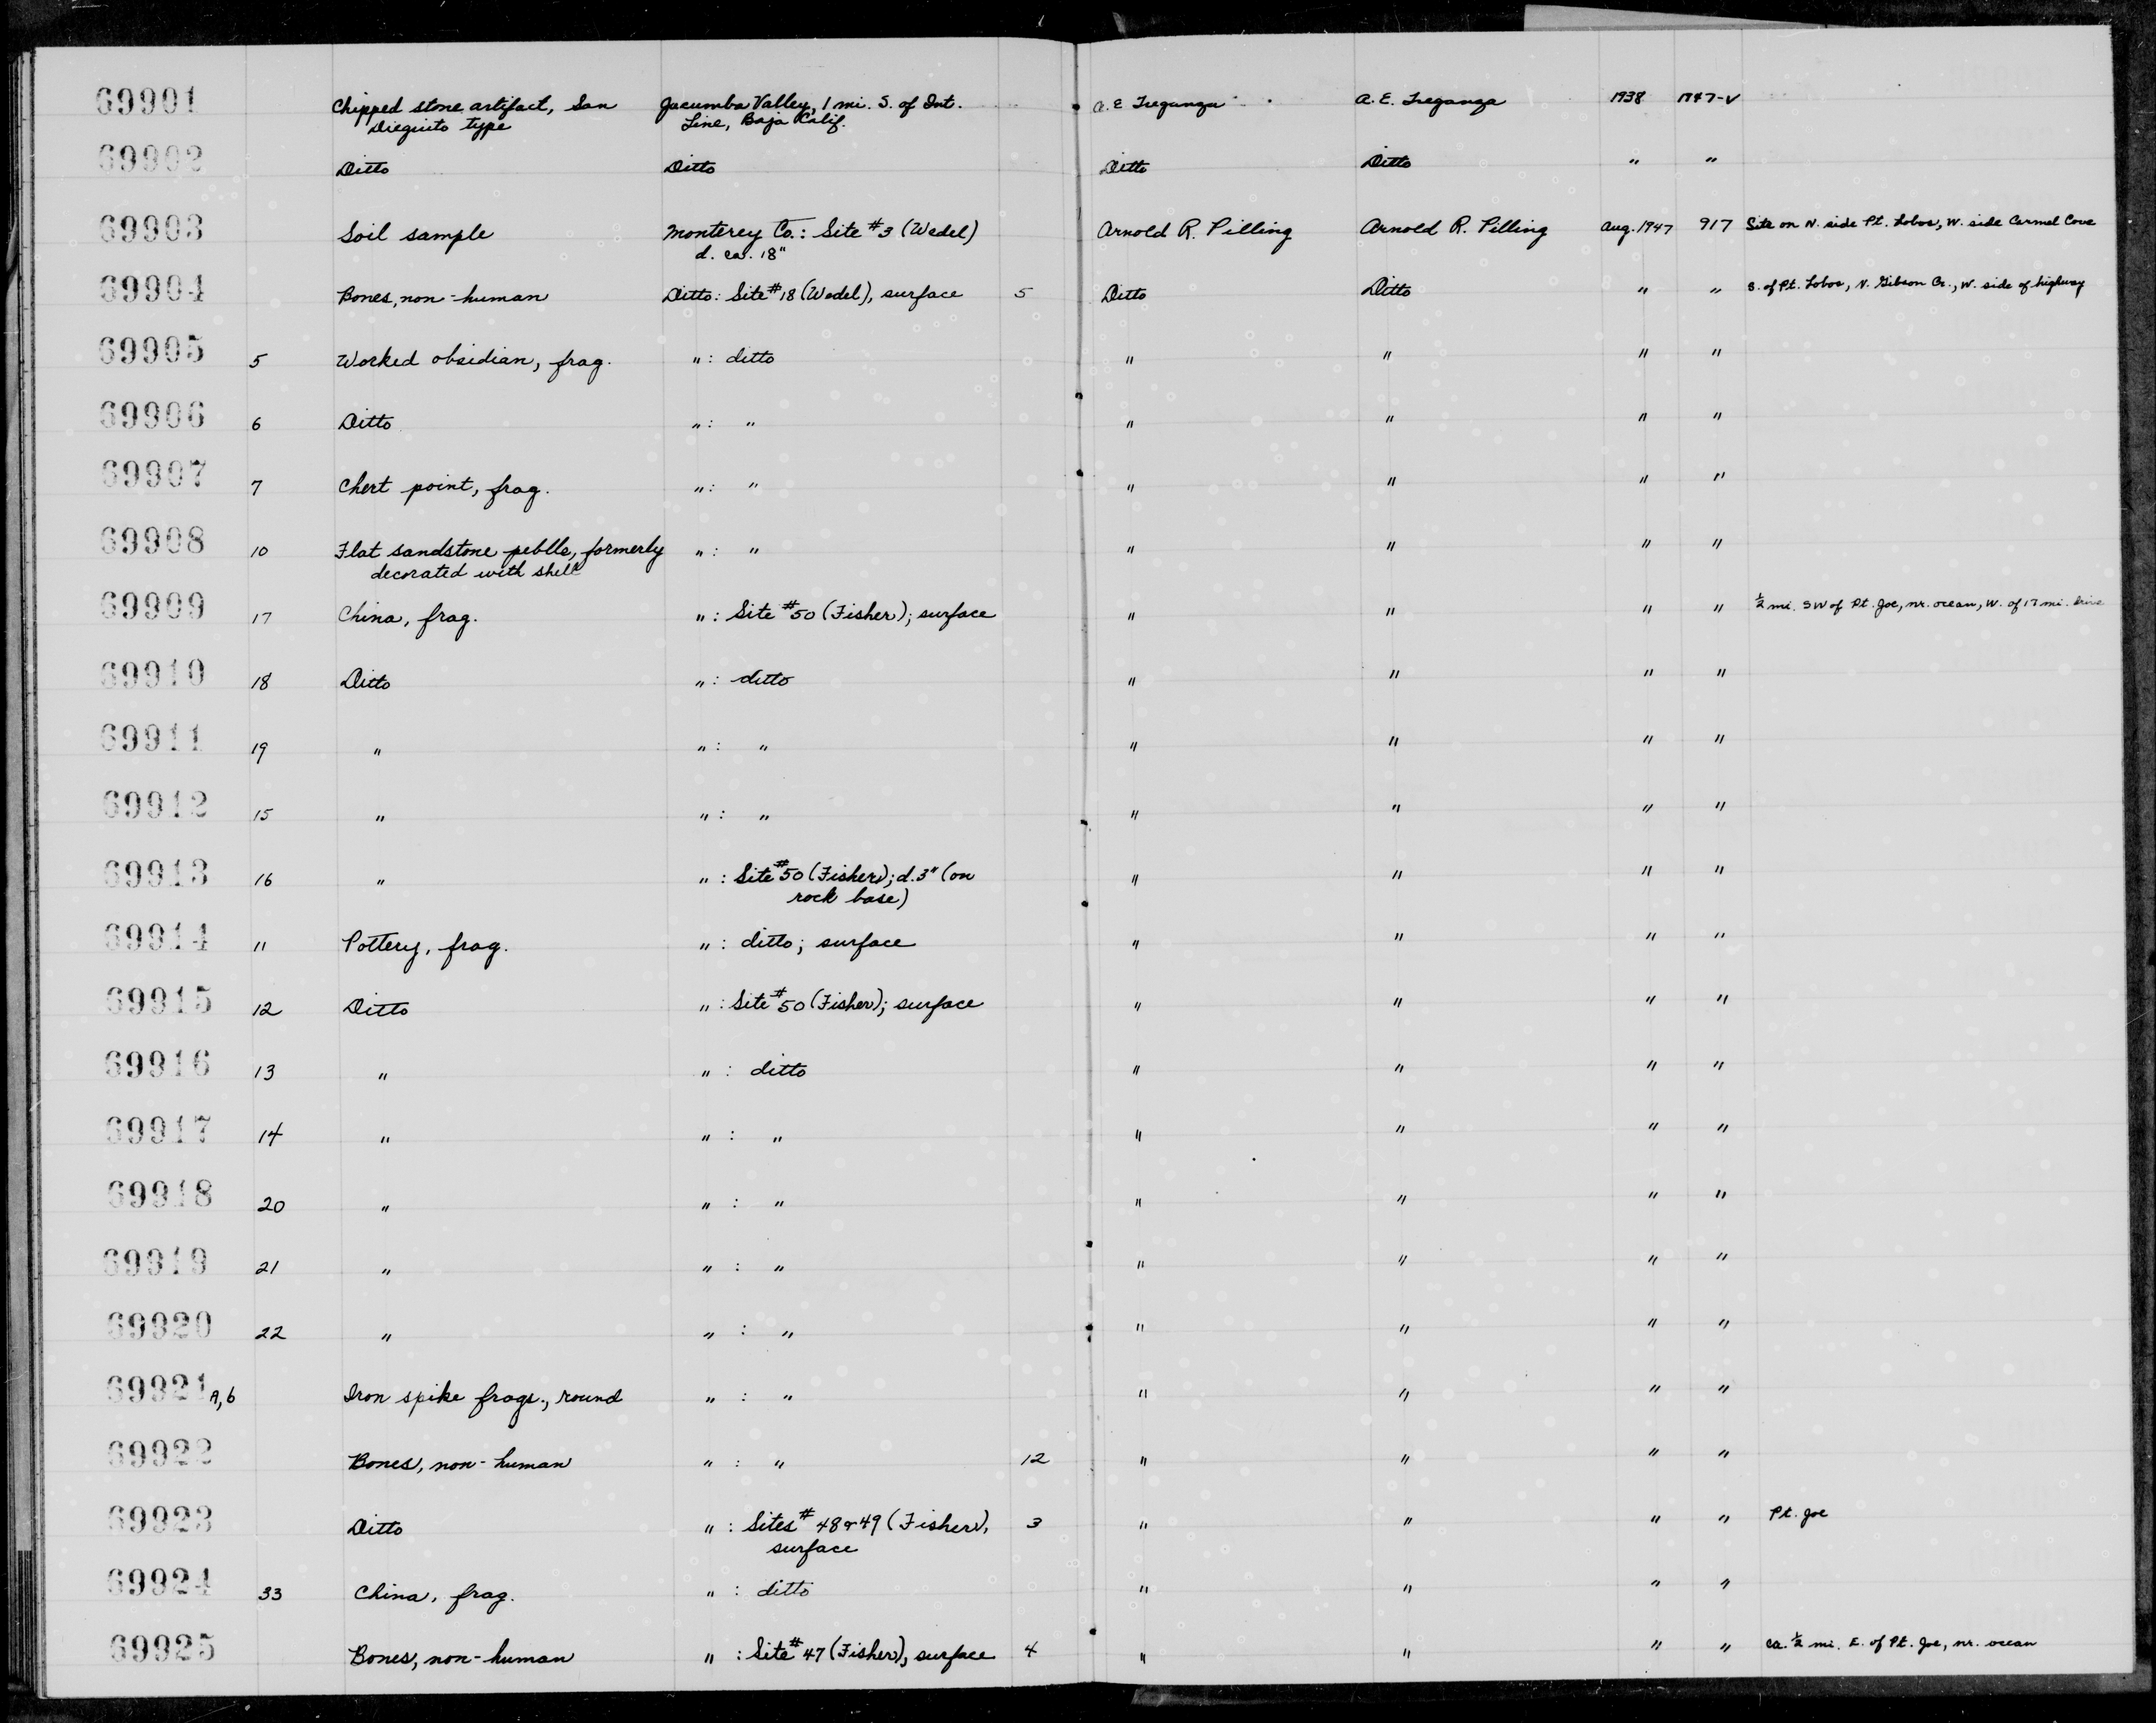 69901 Chipped stone artifact, San Jacumba Valley, 1 mi. S. of Int. A. E. Treganza A. E. Treganza 1938 1947-V
Dieguito type Line, Baja Calif.
69902 Ditto Ditto Ditto Ditto " "
69903 Soil sample Monterey Co.: Site #3 (Wedel) Arnold R. Pilling Arnold R. Pilling Aug. 1947 917 Site on N. side Pt. Lobos, W. side Carmel Cove
d. ca. 18"
69904 Bones, non-human Ditto: Site #18 (Wedel), surface 5 Ditto Ditto " " S. of Pt. Lobos, N. Gibson Cr., W. side of highway
69905 5 Worked obsidian, frag. " : ditto " " " "
69906 6 Ditto " : " " " " "
69907 7 Chert point, frag. " : " " " " "
69908 10 Flat sandstone pebble, formerly " : " " " " "
decorated with shell
69909 17 China, frag. " : Site #50 (Fisher); surface " " " " ½ mi. SW of Pt. Joe, nr. ocean, W. of 17 mi. drive
69910 18 Ditto " : ditto " " " "
69911 19 " " : " " " " "
69912 15 " " : " " " " "
69913 16 " " : Site #50 (Fisher); d. 3" (on " " " "
rock base)
69914 11 Pottery, frag. " : ditto; surface " " " "
69915 12 Ditto " : Site #50 (Fisher); surface " " " "
69916 13 " " : ditto " " " "
69917 14 " " : " " " " "
69918 20 " " : " " " " "
69919 21 " " : " " " " "
69920 22 " " : " " " " "
69921 A,b Iron spike frags., round " : " " " " "
69922 Bones, non-human " : " 12 " " " "
69923 Ditto " : Sites # 48 & 49 (Fisher), 3 " " " " Pt. Joe
surface
69924 33 China, frag. " : ditto " " " "
69925 Bones, non-human " : Site #47 (Fisher), surface 4 " " " " ca. ½ mi. E. of Pt. Joe, nr. ocean